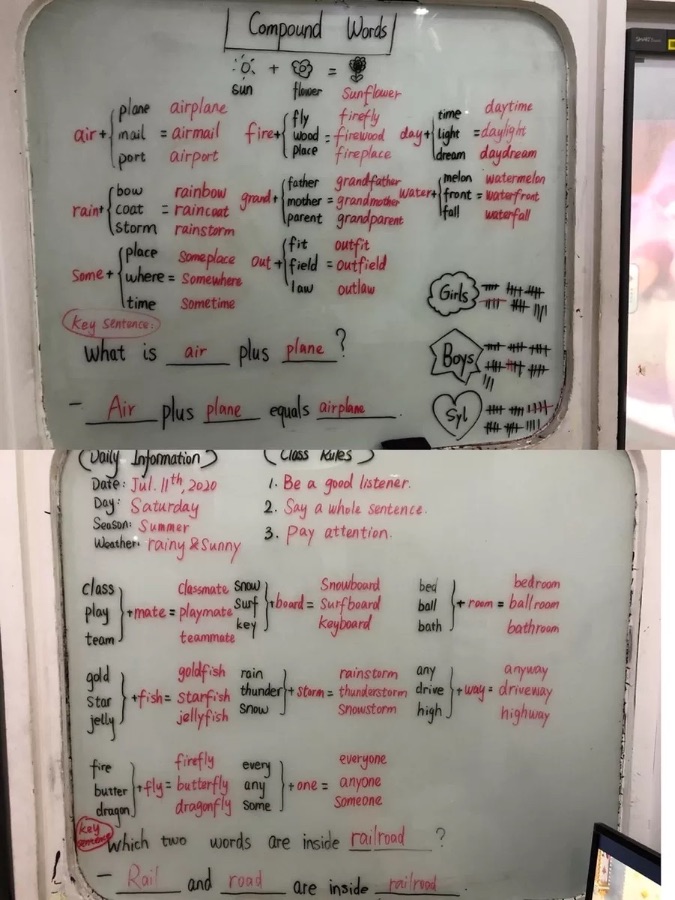 Compound Words
+ =
sun flower Sunflower
air + plane mail port = airplane airmail airport
fire + fly wood place = firefly firewood fireplace
day + time light dream = daytime daylight daydream
rain + bow coat storm = rainbow raincoat rainstorm
grand + father mother parent = grandfather grandmother grandparent
water + melon front fall = watermelon waterfront waterfall
some + place where time = Someplace Somewhere Sometime
out + fit field law = outfit outfield outlaw
Girls
Boys
Syl
Key sentence:
What is air plus plane ?
- Air plus plane equals airplane.
(Daily Information)
Date: Jul. 11th, 2020
Day: Saturday
Season: Summer
Weather: rainy & Sunny
(Class Rules)
1. Be a good listener.
2. Say a whole sentence.
3. Pay attention.
class play team + mate = Classmate playmate teammate
snow surf key + board = Snowboard Surfboard keyboard
bed ball bath + room = bedroom ballroom bathroom
gold star jelly + fish = goldfish starfish jellyfish
rain thunder snow + storm = rainstorm thunderstorm Snowstorm
any drive high + way = anyway driveway highway
fire butter dragon + fly = firefly butterfly dragonfly
every any some + one = everyone anyone Someone
Key sentence
Which two words are inside railroad ?
- Rail and road are inside railroad.